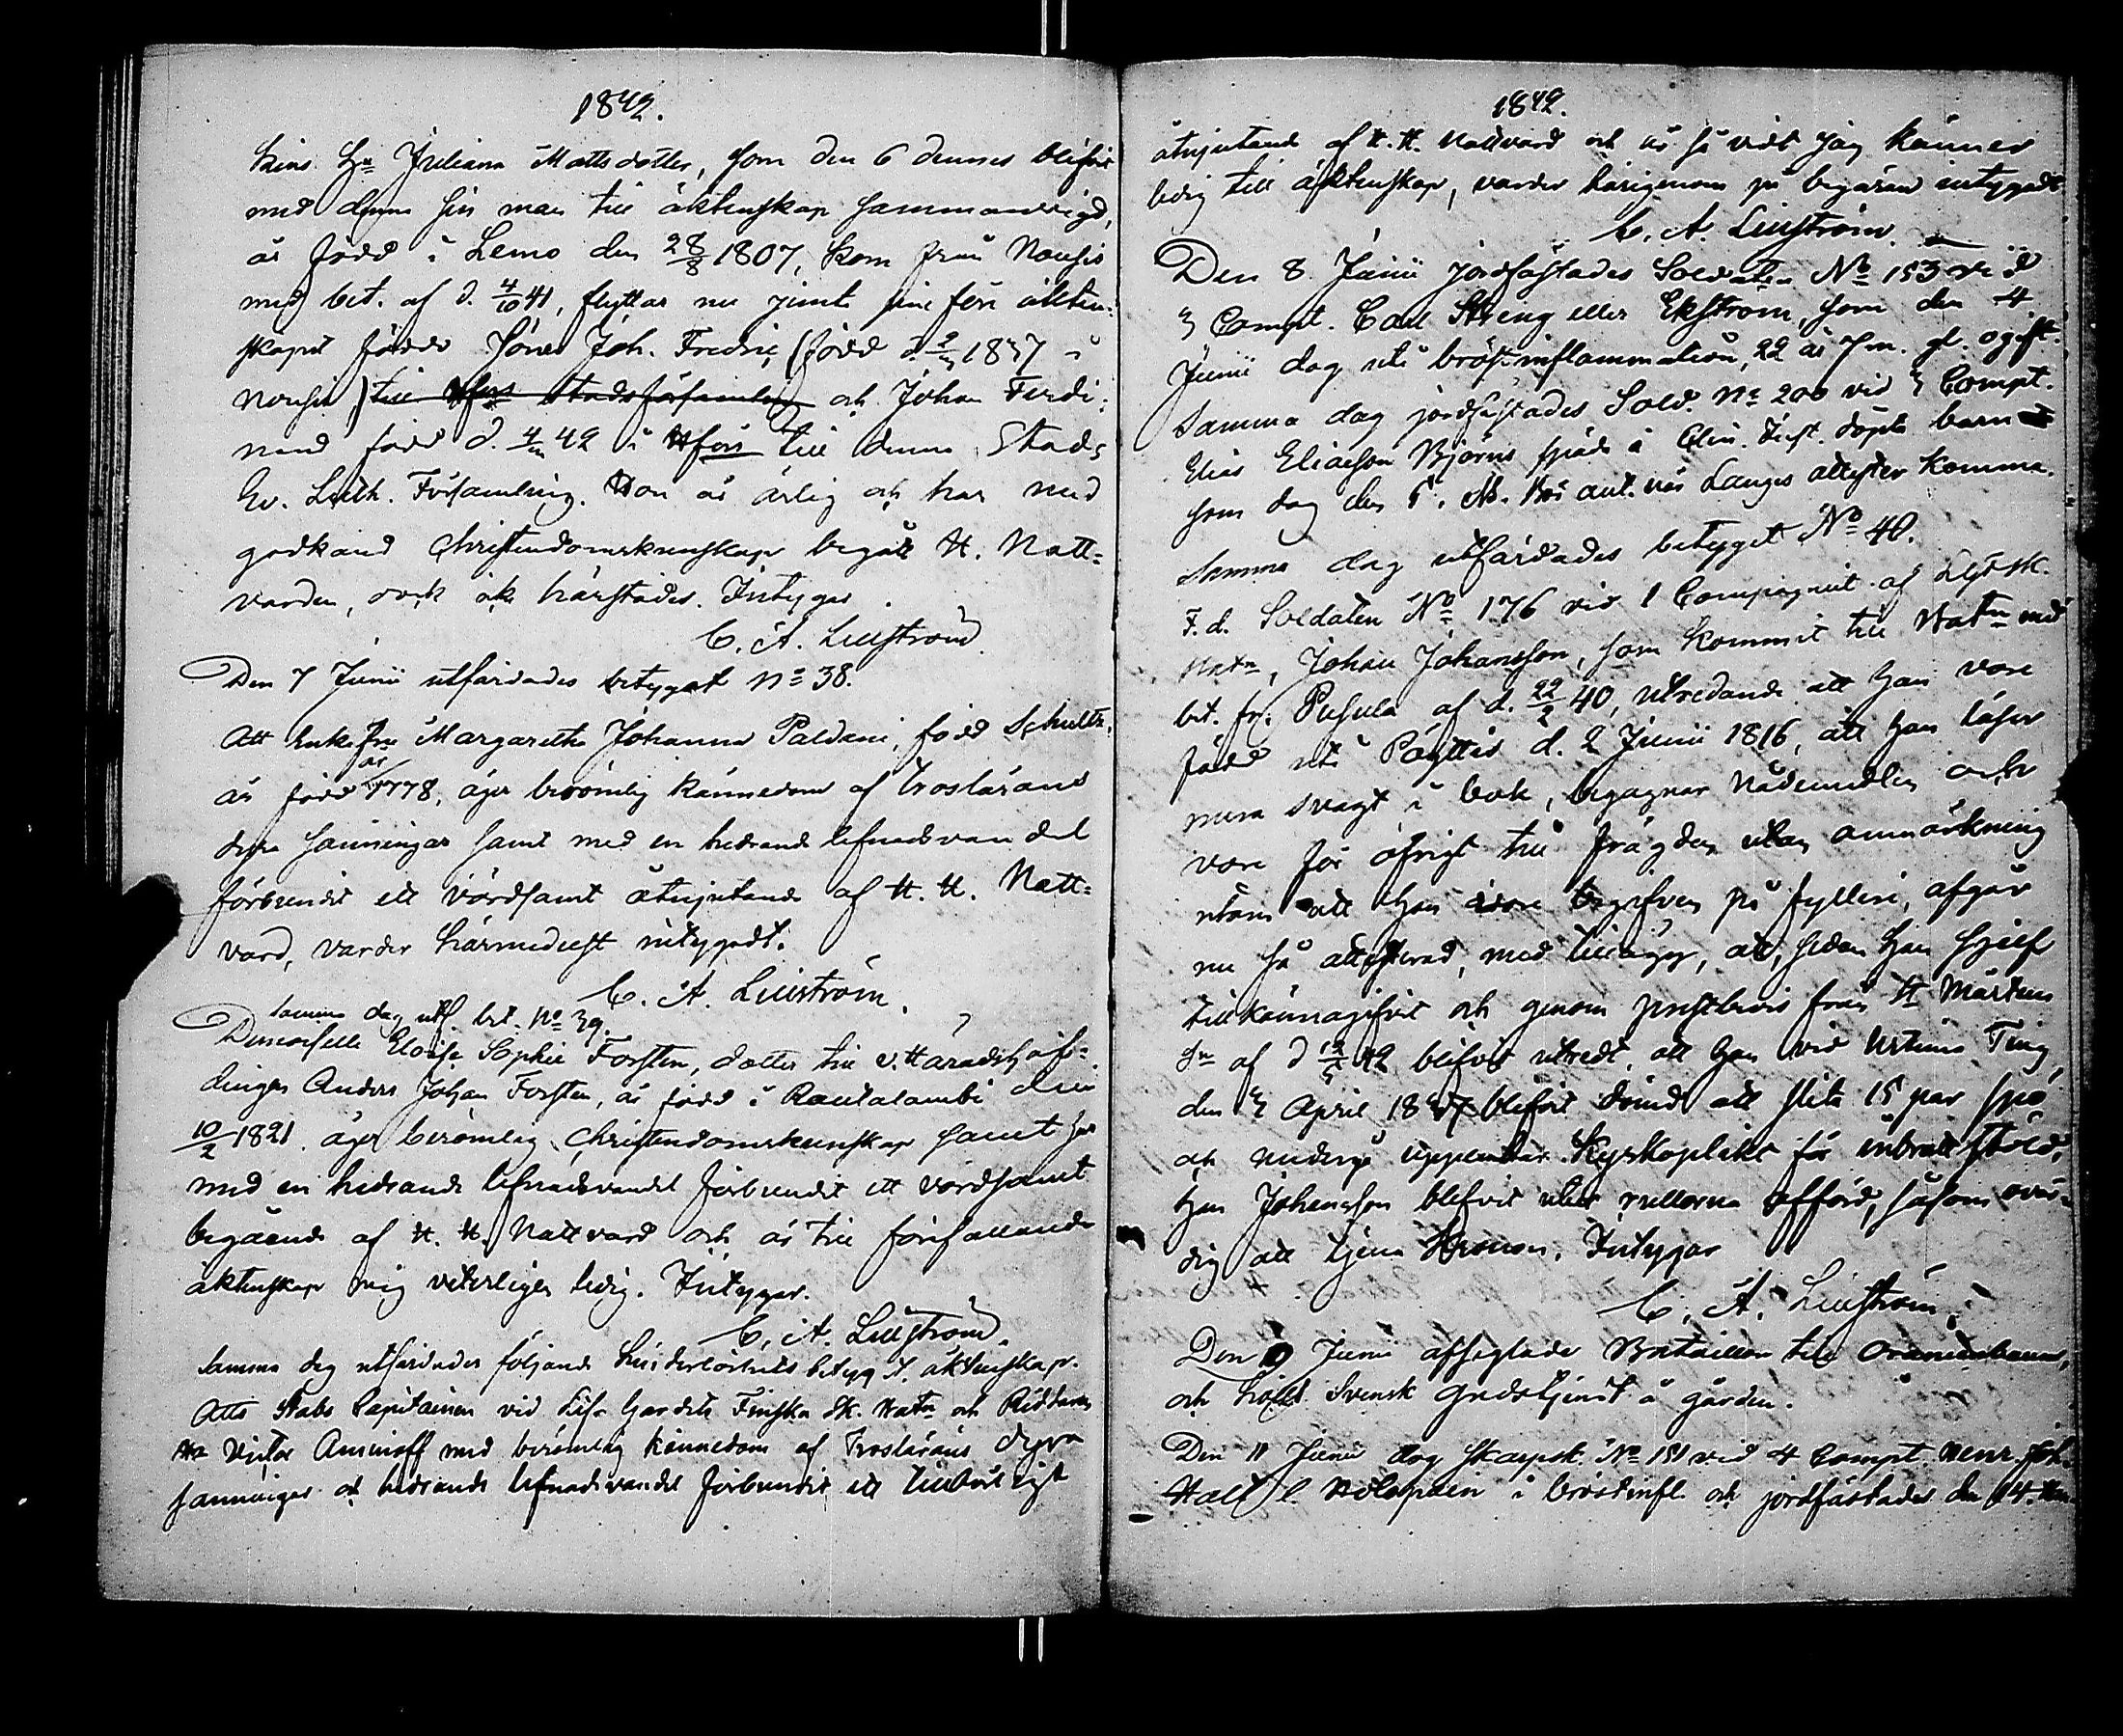 1842.
hins Hu Juliana Mattsdotter, som den 6 dennes blifvit
med denne sin man till äktenskap sammanvigd,
är född i Lemo den 28/8 1807, kom från Nousis
med bet. af d. 4/10 41, flyttar nu jemte sine före äkten-
skapet födde Söner Joh. Fredric (född d. 1837 i
Nousis) till Hfors Stadsförsamling och Johan Ferdi-
nand född d. 42 i Hfors till denna Stads
Ev. Luth. Församling. Hon är ärlig och har med
godkänd Christendomskunskap begått H. Natt-
varden, ock äke härstädes. Intygas
C. A. Lillström
Den 7 Junii utfärdades betyget No 38.
Att Enkefru Margaretha Johanna Paldani, född Schultz,
är född år 1778, äger berömlig kännedom af troslärans
dyra sanningar samt med en hedrande lefnadsvandel
förbundit ett vördsamt åtnjutande af H. H. Natt-
vard, varder härmedelst intygadt.
C. A. Lillström.
Samma dag utf. bet. No 39.
Demoiselle Eloise Sophie Forsten, dotter till v. Häradshöf-
dingen Anders Johan Forsten, är född i Rautalambi den
10/2 1821. äger berömlig Christendomskunskap samt har
med en hedrande lefnadsvandel förbundit ett vördsamt
begående af H. H. Nattvard och är till förefallande
äktenskap mig veterligen ledig. Intygar.
C. A. Lillström.
Samma dag utfärdades följande hinderlöshets betyg t. äktenskap.
Att Stabs Capitainen vid Lif Gardets Finska Sk. Batn och Riddaren
Hr Victor Aminoff med berömlig kännedom af Troslärans dyra
sanningar och hedrande lefnadsvandel förbundit ett tillbörligt
1842.
åtnjutande af H. H. Nattvard och är så vidt jag känner
ledig till äktenskap, varder härigenom på begäran intygadt
C. A. Lillström.
Den 8 Junii jordfästades Soldaten No 153 vid
3 Compt. Carl Streng eller Ekström, som den 4
Junii dog uti bröstinflammation, 22 år 7 m. gl. ogift.
Samma dag jordfästades Sold. No 200 vid 3 Compt.
Elias Eliasson Björns späda å Clin. Inst. döpta barn
som dog den 5. Ab. Hrs ant. när Langes attester komma.
Samma dag utfärdades betyget No 40.
F. d. Soldaten No 176 vid 1 Compagniet af LgFSk.
Batn, Johan Johansson, som kommit till Batn med
bet. fr. Pusula af d. 22/2 40, utredande att han vore
född uti Pöyttis d. 2 Junii 1816, att han läser
svagt i bok, begagnar Nådemedlen och
vore för öfrigt till frägden utan anmärkning
utom att han vore begifven på fylleri, afgår
nu så attesterad, med tillägg, att, sedan han sjelf
tillkännagifvit och genom prestbevis från St Mårtens
Sn af d 12/5 42 blifvit utredt, att han vid Urtima Ting
den 3 April 1837 blifvit dömd att slita 15 par spö
och undergå uppenbar Kyrkoplikt för inbrottstöld,
han Johansson blifvit utur rullorna afförd, såsom ovär-
dig att tjena Kronan. Intygar
C. A. Lillström.
Den 9 Junii afseglade Bataillon till Oranienbaum,
och hölls Svensk Gudstjenst å gården.
Den 11 Junii dog Skarpsk. No 181 vid 4 Compt. Henr. Joh.
Hall l. i bröstinfl. och jordfästades den 14.